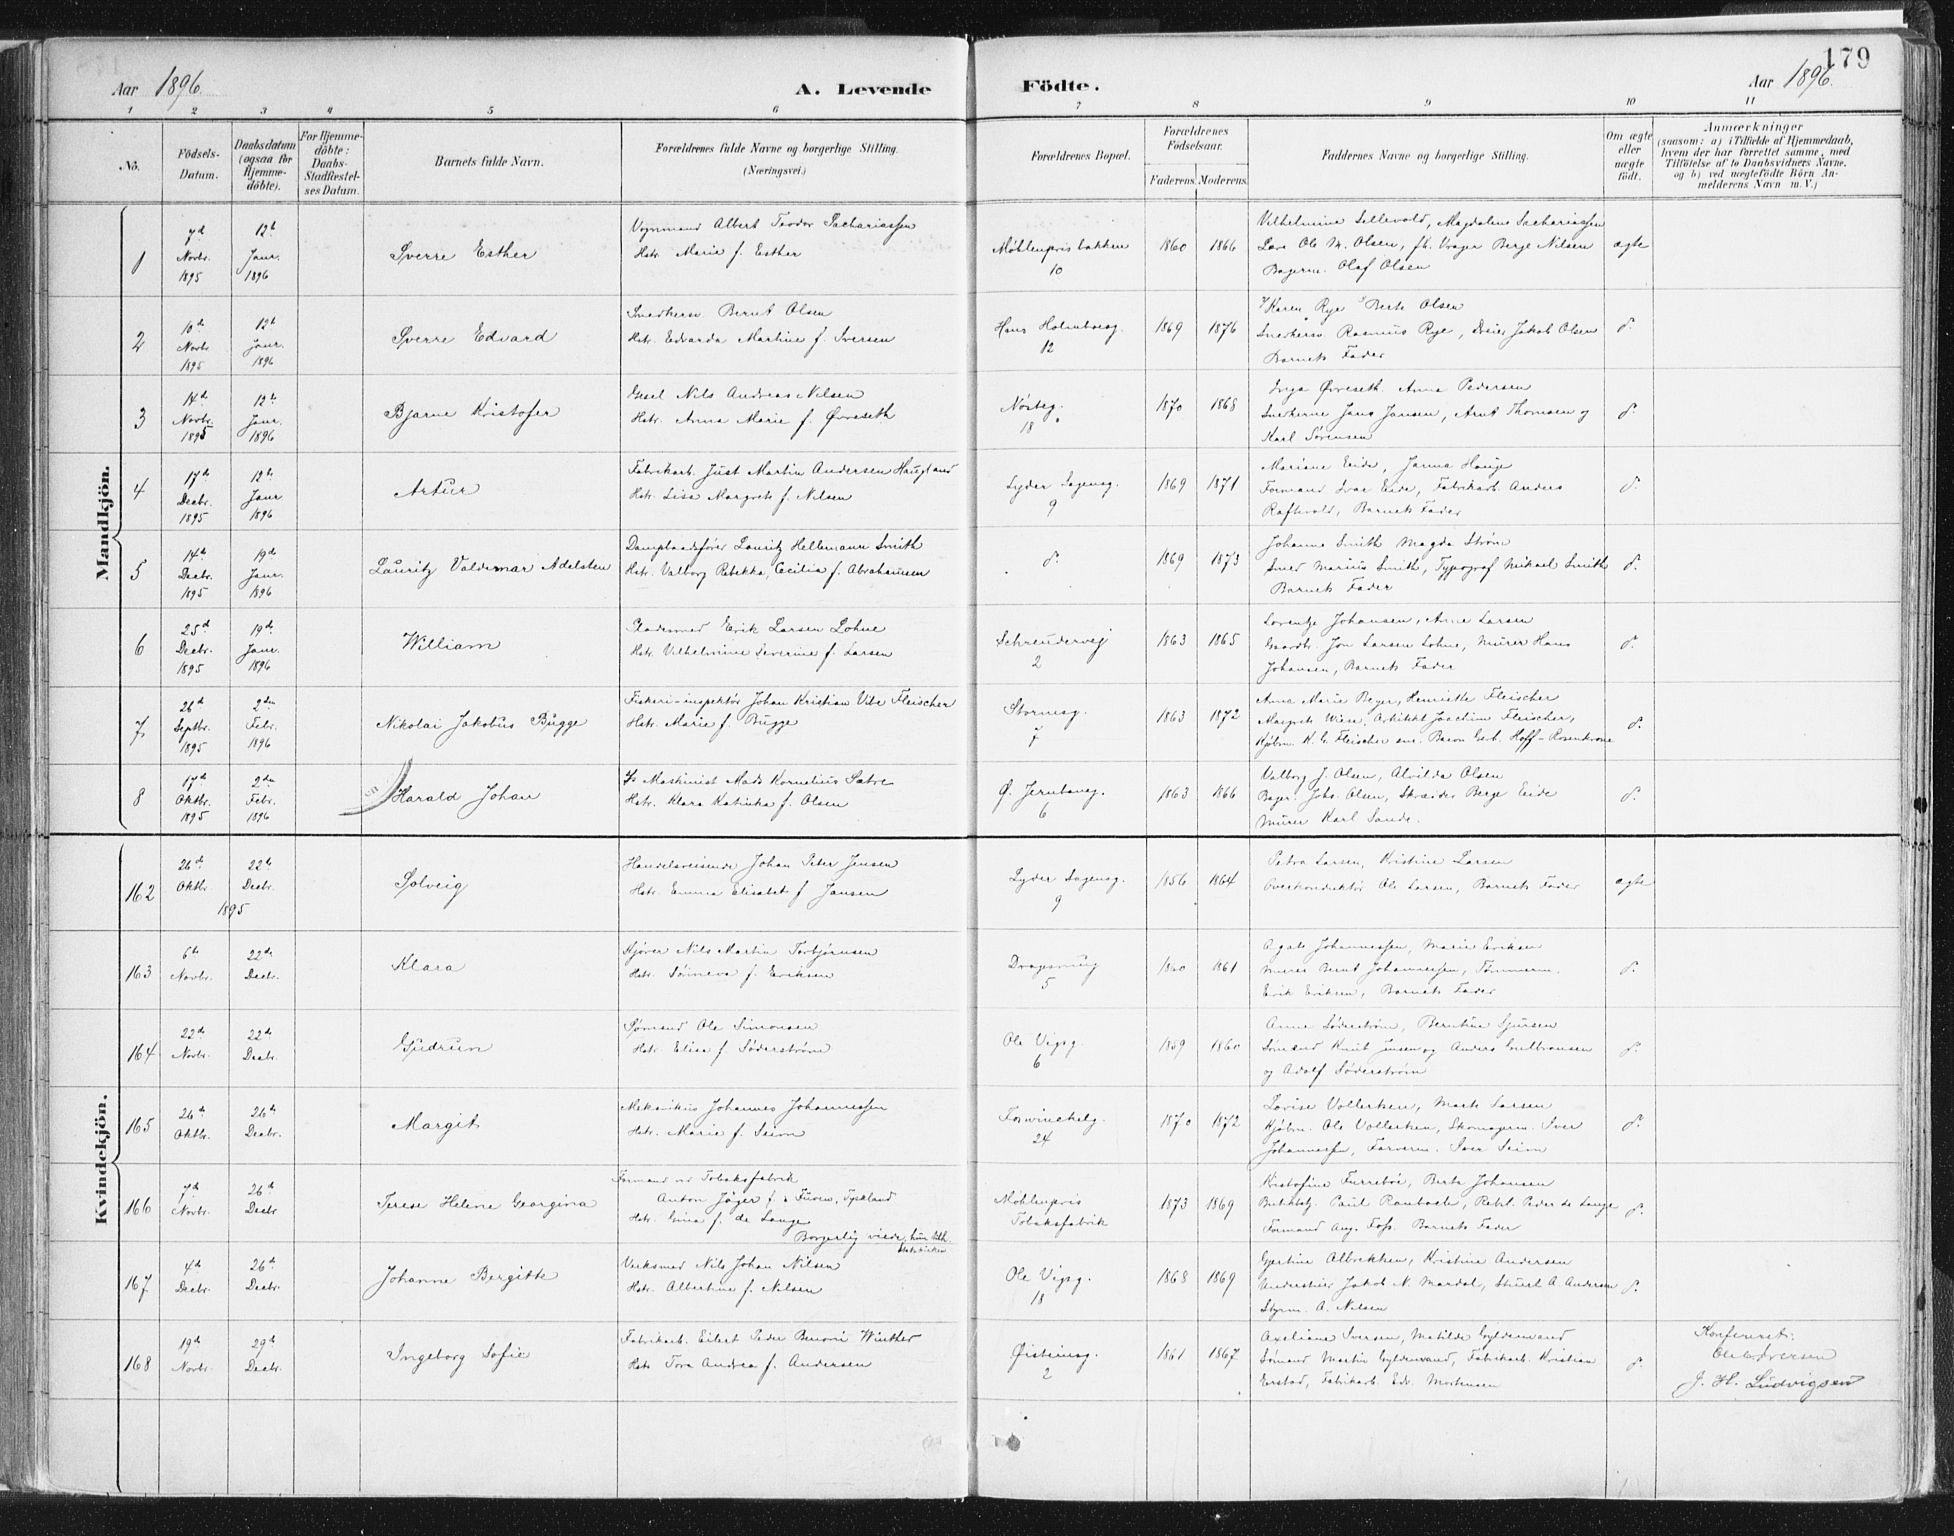 179
Aar 1896.
A. Levende
Födte.
Aar 1896.
1 2 3 4 5 6 7 8 9 10 11
No.
Födsels-Datum.
Daabsdatum (ogsaa for Hjemmedöbte).
For Hjemmedöbte: Daabs-Stadfæstelses Datum.
Barnets fulde Navn.
Forældrenes fulde Navne og borgerlige Stilling. (Næringsvei.)
Forældrenes Bopæl.
Forældrenes Födselsaar.
Faderens. Moderens.
Faddernes Navne og borgerlige Stilling.
Om ægte eller uægte födt.
Anmærkninger
(saasom: a) i Tilfælde af Hjemmedaab,
hvem der har forrettet samme, med
Tilföielse af to Daabsvidners Navne,
og b) ved uægtefödte Börn An-
melderens Navn m. V.)
Mandkjön.
1
7d Novbr. 1895
12te Janr. 1896
Sverre Esther
Vognmand Albert Teodor Zachariassen
Hstr. Marie f. Esther
Møhlenprisbakken
10
1860 1866
Vilhelmine Sellevold, Magdalene Zachariassen
Lars Ole M. Olsen, fh. Vrager Berge Nilsen
Bagerm. Olaf Olsen
ægte
2
10d Novbr. 1895
12te Janr. 1896
Sverre Edvard
Snedkersv. Bernt Olsen
Hstr. Edvarda Martine f. Iversen
Hans Holmboesg.
12
1869 1876
Karen Rye Berte Olsen
Snedkersv. Rasmus Rye, Dreier Jakob Olsen
Barnets Fader
d.
3
14d Novbr. 1895
12te Janr. 1896
Bjarne Kristofer
Gesel Nils Andreas Nilsen
Hstr. Anna Marie f. Øvreseth
Nösteg.
18
1870 1868
Inga Øvreseth. Anna Pedersen
Snekerne Jens Jansen, Arnt Thomsen og
Karl Sörensen
d.
4
17d Decbr. 1895
12te Janr 1896
Artur
Fabrikarb. Just Martin Andersen Haugland
Hstr. Lisa Margrete f. Nilsen
Lyder Sagensg.
9
1869 1871
Mariane Eide, Janna Hauge
Formand Ivar Eide, Fabrikarb. Anders
Raftevold, Barnets Fader
d.
5
14d Decbr. 1895
19d Janr. 1896
Lauritz Valdemar Adelsten
Dampbaadsfører Lauritz Hellemann Smith
Hstr. Valborg Rebekka, Cecilia f. Abrahamsen
d.
1869 1873
Johanne Smith Magda Strøm
Smed Marius Smith, Typograf Mikael Smith
Barnets Fader
d.
6
25d Decbr. 1895
19d Janr. 1896
William
Pladesmed Erik Larsen Lohne
Hstr. Vilhelmine Severine f. Larsen
Schreudervej
2
1863 1865
Lorentze Johansen, Anne Larsen
Gaardbr. Jon Larsen Lohne, Murer Hans
Johansen, Barnets Fader
d.
7
26d Septbr. 1895
2den Febr. 1896
Nikolai Jakobus Bugge
Fiskeri-inspektør Johan Kristian Vibe Fleischer
Hstr. Marie f. Bugge
Stormsg.
7
1863 1872
Anna Marie Beyer, Henriette Fleischer
Margrete Wiese, Arkitekt Joachim Fleischer,
Kjøbm. K. G. Fleischer sen. Baron Gerh. Hoff-Rosenkrone
d.
8
17d Oktbr. 1895
2den Febr. 1896
Harald Johan
Maskinist Mads Kornelius Sætre
Hstr. Klara Katinka f. Olsen
Ø. Jernbaneg.
6
1863 1866
Valborg J. Olsen, Alvilda Olsen
Bager. Johs. Olsen, Skræder Berge Eide
Murer Karl Sande.
d.
Kvindekjön.
162
26d Oktbr.
22de Decbr.
1895
Solveig
Handelsreisende Johan Peter Jensen
Hstr. Emma Elisabet f Jansen
Lyder Sagensg.
9
1856 1864
Petra Larsen, Kristine Larsen
Overkonduktør Ole Larsen, Barnets Fader
ægte
163
6te Novbr.
22de Decbr.
Klara
Kjører Nils Martin Torbjørnsen
Hstr. Sønneva f. Eriksen
Dragesmug
5
1860 1861
Agate Johannessen, Marie Eriksen
Murer Bernt Johannessen, Tømmerm.
Erik Eriksen, Barnets Fader
d.
164
22de Novbr.
22de Decbr.
Gudrun
Sjømand Ole Simonsen
Hstr. Elisa f. Söderstrøm
Ole Vigsg.
6
1859 1860
Anna Söderstrøm, Berntine Sjursen
Sømand Knut Jensen og Anders Gulbransen
og Adolf Söderstrøm
d.
165
26de Oktbr.
26de Decbr.
Margit
Mekanikus Johannes Johannessen
Hstr. Marie f. Seim
Forswinckelg.
24
1870 1872
Lovise Vollertsen, Marte Larsen
Kjøbm. Ole Vollertsen, Skomagerm. Iver
Johannessen, Farverm. Iver Seim
d.
166
7d Novbr.
26de Decbr
Terese Helene Georgina
Formand ved Tobaksfabrik
Anton Jäger f. i Füren, Tyskland
Hstr. Gina f. de Lange
Borgerlig viede, hun tilh. Statskirken
Møhlenpris
Tobaksfabrik
1873 1869
Kristofine Furrebøe, Berte Johansen
Butikholj. Paul Raubach, Rebsl. Peder de Lange
Formand Aug. Foss. Barnets Fader
d.
167
4d Decbr.
26de Decbr.
Johanne Bergitte
Verksmed Nils Johan Nilsen
Hstr. Albertine f. Nilsen
Ole Vigsg.
18
1868 1869
Gjertine Albrekken, Kristine Andersen
Understuer Jakob N. Mardal, Stuert A. Andersen
Styrm. A. Nilsen
d.
168
19d Novbr.
29d Decbr.
Ingeborg Sofie
Fabrikarb. Eilert Peder Benoni Winther
Hstr Tora Andrea f. Andersen
Øisteinsg.
2
1861 1867
Axeliane Iversen, Matilde Gyldenvand
Sømand Martin Gyldenvand, Fabrikarb. Kristian
Erstad, Fabrikarb. Edv. Mortensen
d.
Konfereret:
J. H. Ludvigsen